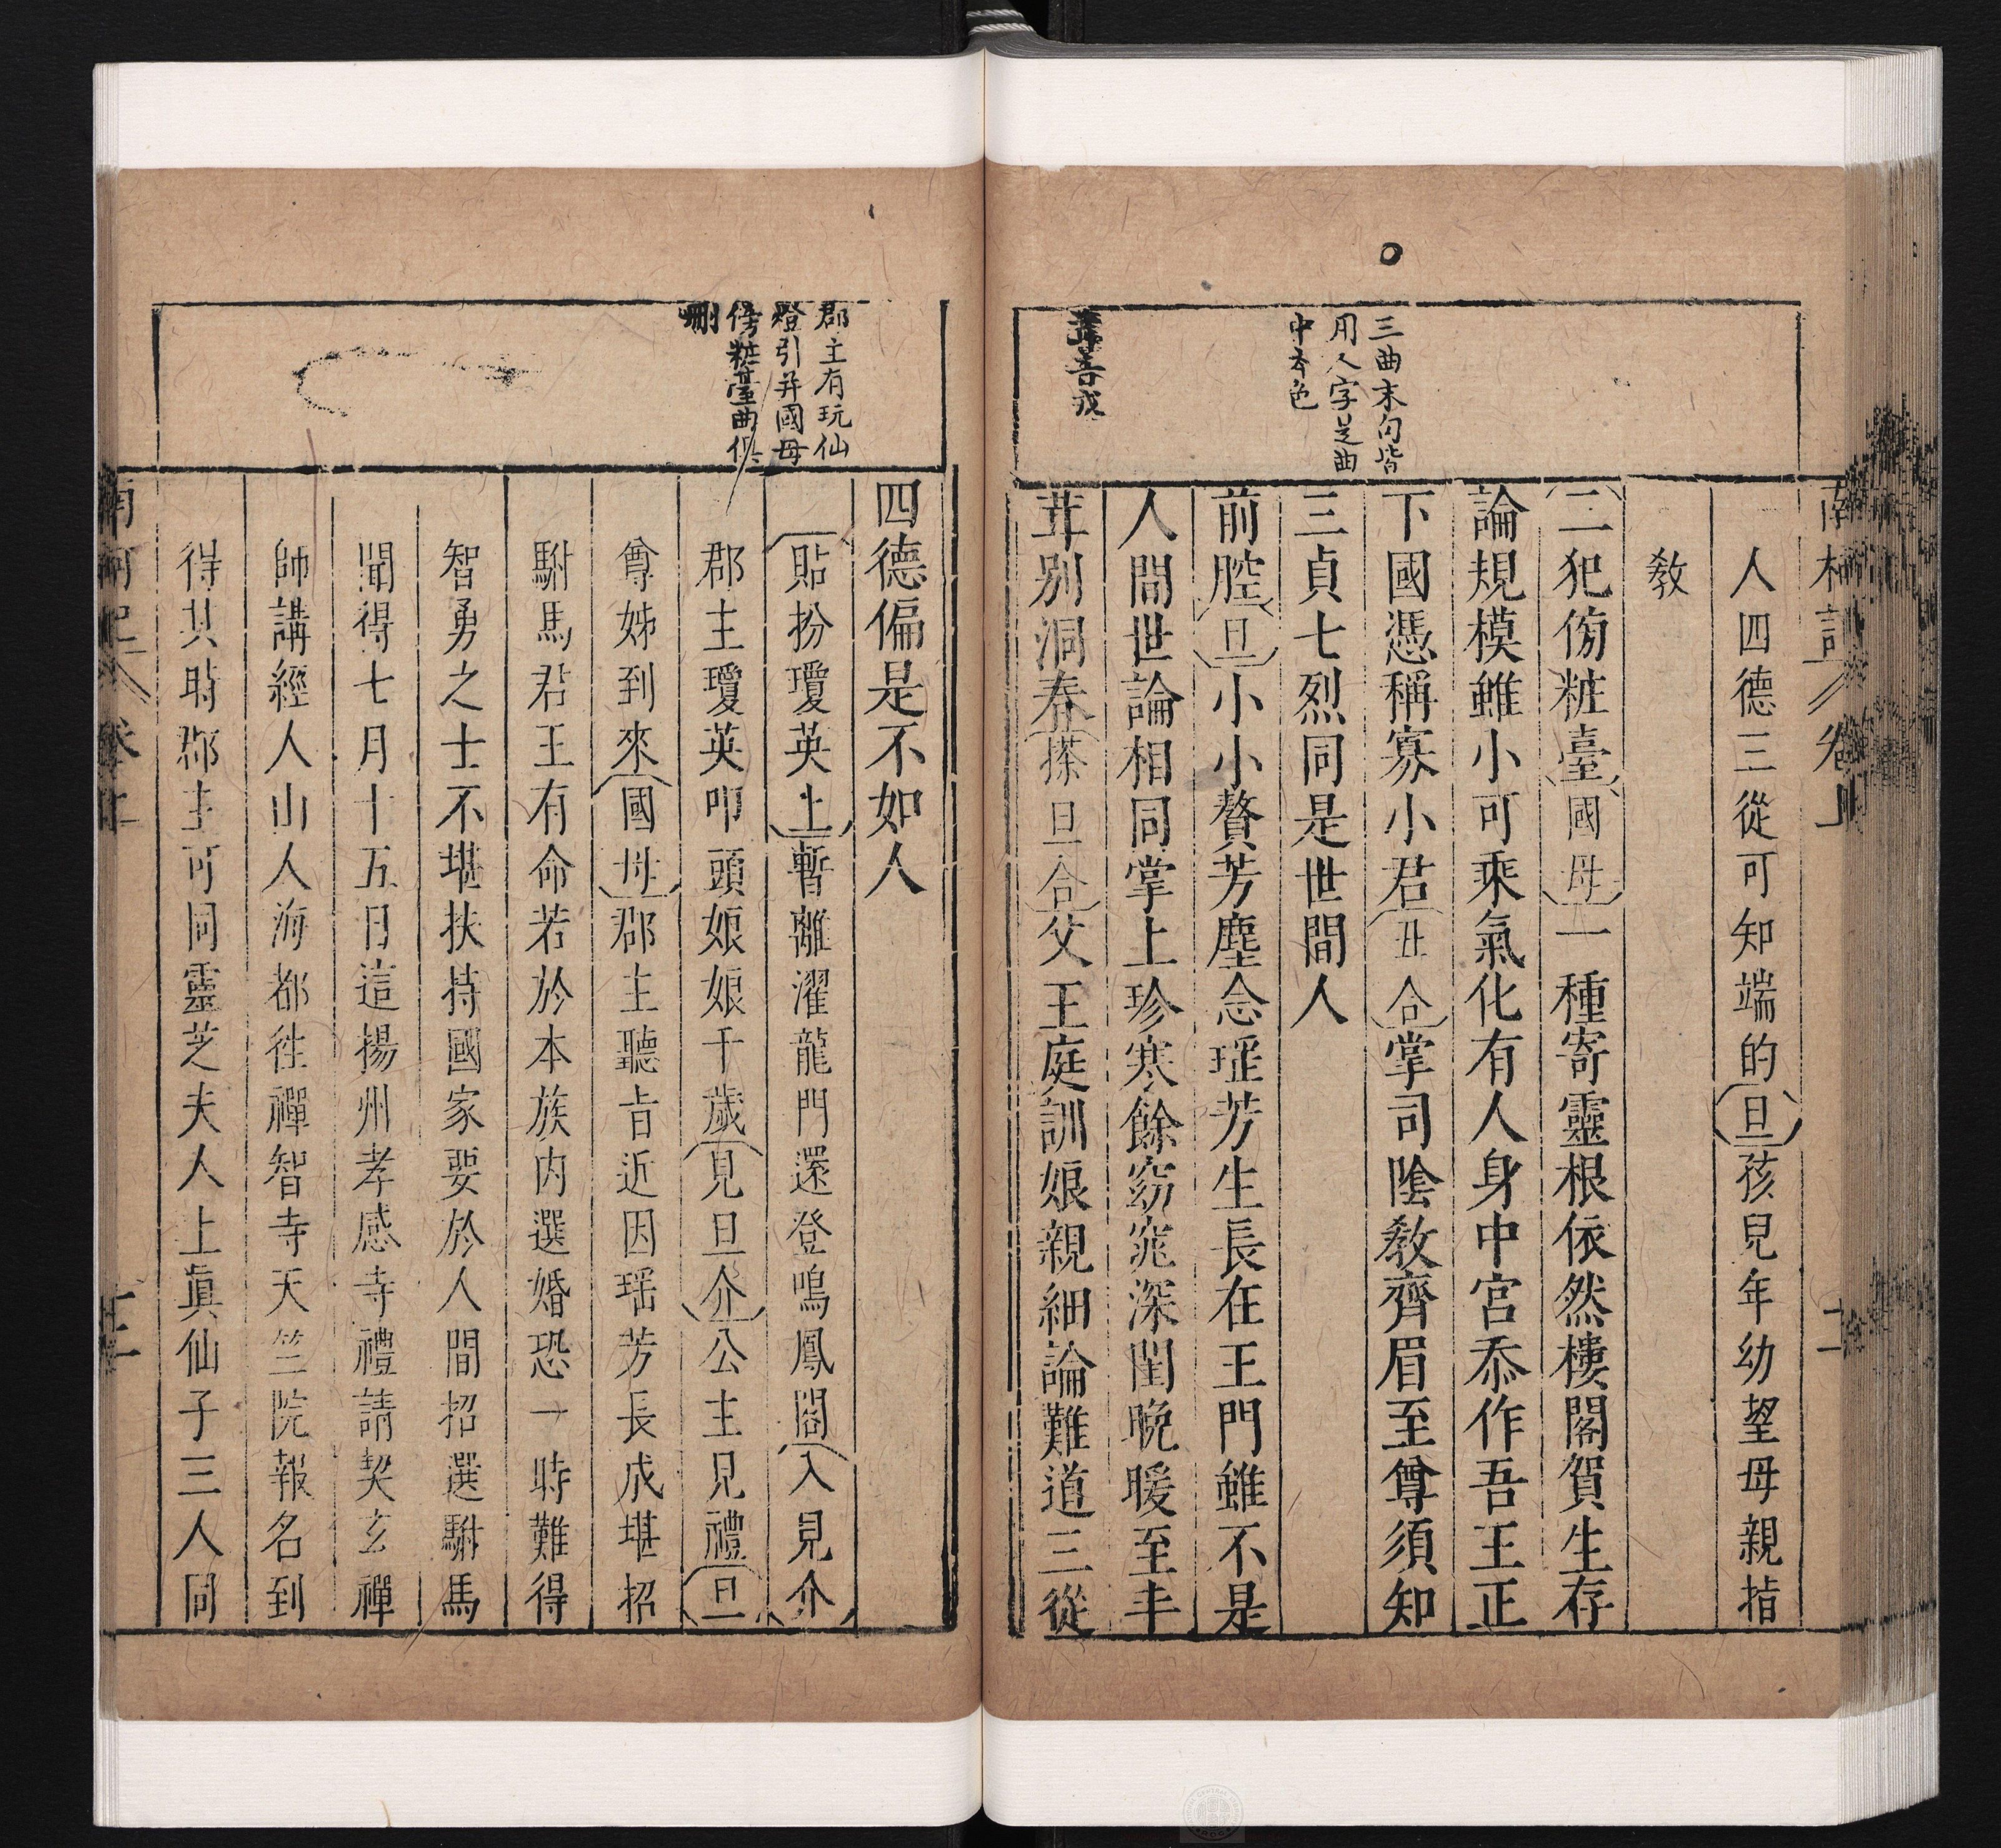 南柯記 卷上 二
三曲末句皆
用人字是曲
中本色
人四德三從可知端的旦孩兒年幼望母親指
教
二犯傍粧臺國母一種寄靈根依然樓閣賀生存
論規模雖小可乘氣化有人身中宮忝作吾王正
下國憑稱寡小君丑合掌司陰教齊眉至尊須知
三貞七烈同是世間人
前腔旦小小贅芳塵念瑶芳生長在王門雖不是
人間世論相同掌上珍寒餘窈窕深閨晚暖至丰
茸別洞春搽旦合父王庭訓娘親細論難道三從
郡主有玩仙
燈引并國母
傍粧臺曲俱
刪
四德偏是不如人
貼扮瓊英上暫離濯龍門還登鳴鳳閣入見介
郡主瓊英叩頭娘娘千歲見旦介公主見禮旦
尊姊到來國母郡主聽旨近因瑶芳長成堪招
駙馬君王有命若於本族内選婚恐一時難得
智勇之士不堪扶持國家要於人間招選駙馬
聞得七月十五日這揚州孝感寺禮請契玄禪
師講經人山人海都徃禪智寺天竺院報名到
得其時郡主可同靈芝夫人上眞仙子三人同
南柯記 卷上